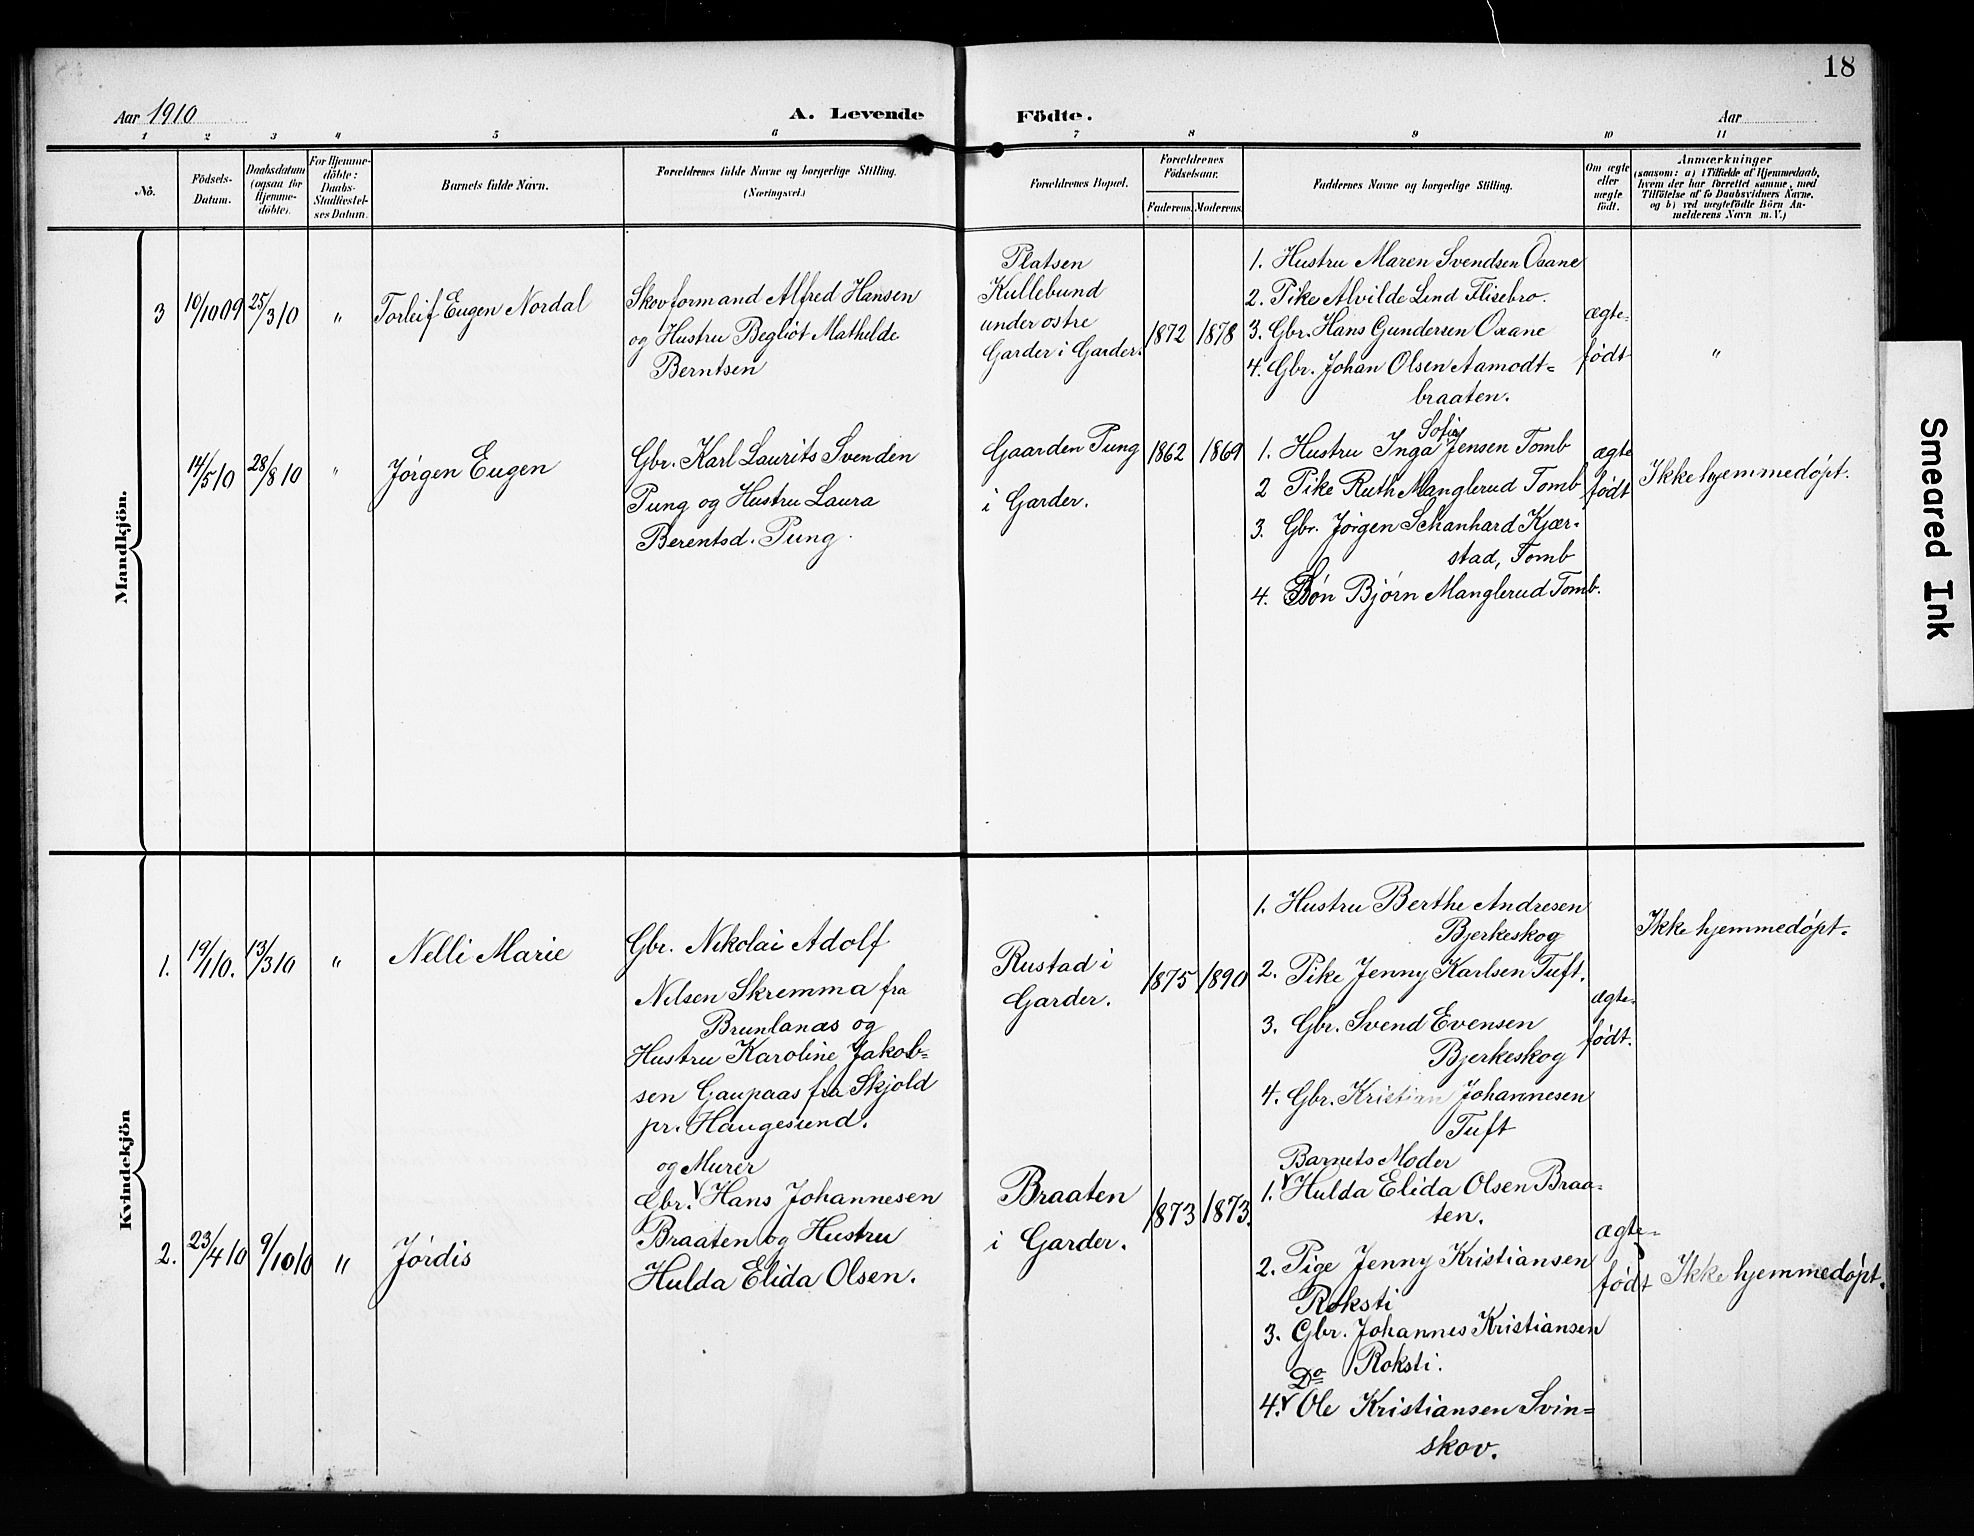 18
Aar 1910
A. Levende Födte.
Aar
1 2 3 4 5 6 7 8 9 10 11
No.
Födsels-
Datum.
Daabsdatum
(ogsaa for
Hjemme-
döbte).
For Hjemme-
döbte:
Daabs-
Stadfæstel-
ses Datum.
Barnets fulde Navn.
Forældrenes fulde Navne og borgerlige Stilling.
(Næringsvei.)
Forældrenes Bopæl.
Forældrenes
Födselsaar.
Faderens. Moderens.
Faddernes Navne og borgerlige Stilling.
Om ægte
eller
uægte
födt.
Anmærkninger
(saasom: a) i Tilfælde af Hjemmedaab,
hvem der har forrettet samme, med
Tilföielse af to Daabsvidners Navne,
og b) ved uægtefödte Börn An-
melderens Navn m. V.)
Mandkjön.
3
10/10 09
25/3 10
"
Torleif Eugen Nordal
Skovformand Alfred Hansen
og Hustru Begliót Mathelde
Berntsen
Platsen
Kullebund
under østre
Garder i Garder.
1872
1878
1. Hustru Maren Svendsen Oxane
2. Pike Alvilde Lind Flisebro.
3. Gbr. Hans Gundersen Oxane
4. Gbr. Johan Olsen Aamodt=
braaten.
ægte-
født
"
14/5 10
28/8 10
"
Jørgen Eugen
Gbr. Karl Laurits Svenden
Pung og Hustru Laura
Berentsd. Pung.
Gaarden Pung
i Garder.
1862
1869
Sofie
1. Hustru Inga Jensen Tomb
2 Pike Ruth Manglerud Tomb
3. Gbr. Jørgen Schanhard Kjær-
stad, Tomb
4. Søn Bjørn Manglerud Tomb.
ægte
født
Ikke hjemmedøpt.
Kvindekjön
1.
19/1 10.
13/3 10
"
Nelli Marie
Gbr. Nikolai Adolf
Nilsen Skremma fra
Brunlanæs og
Hustru Karoline Jakob=
sen Gaupaas fra Skjold
pr. Haugesund.
Rustad i
Garder.
1875
1890
1. Hustru Berthe Andresen
Bjerkeskog
2. Pike Jenny Karlsen Tuft.
3. Gbr. Svend Evensen
Bjerkeskog
4. Gbr. Kristian Johannesen
Tuft
ægte-
født.
Ikke hjemmedøpt.
2.
23/4 10
9/10 10
"
Jørdis
og Murer
Gbr. Hans Johannesen
Braaten og Hustru
Hulda Elida Olsen.
Braaten
i Garder.
1873
1873.
Barnets Moder
1. Hulda Elida Olsen Braa-
ten.
2. Pige Jenny Kristiansen
Roksti
3. Gbr. Johannes Kristiansen
Roksti.
Do
4. Ole Kristiansen Svin=
skov.
ægte-
født
Ikke hjemmedøpt.
Smeared Ink